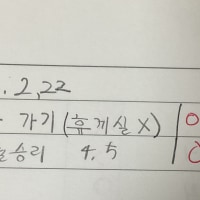 . 2,22
가기 (휴게실 X) 0
승리 4.5 0